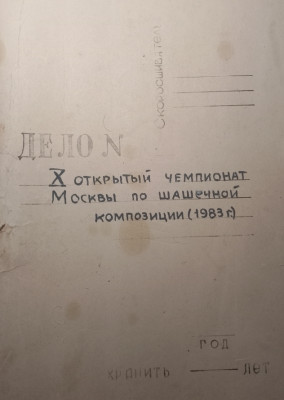 СКОРОСШИВАТЕЛЬ
ДЕЛО N
X ОТКРЫТЫЙ ЧЕМПИОНАТ
МОСКВЫ ПО ШАШЕЧНОЙ
КОМПОЗИЦИИ (1983 г.)
ГОД
ХРАНИТЬ ЛЕТ